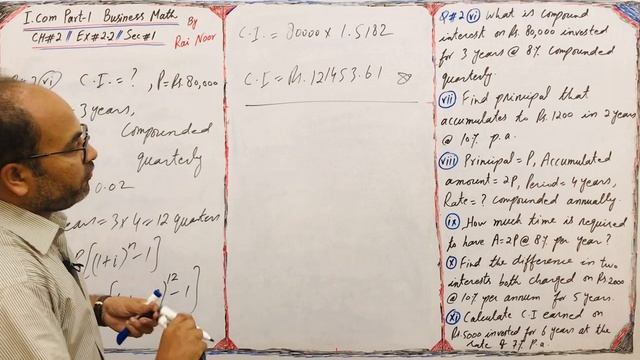 I.Com Part-1 Business Math
By
CH#2 // EX#2.2 // Sec#1
Rai Noor
C.I. = ? , P=Rs. 80,000
3 years,
Compounded
quarterly
0.02
ears = 3 x 4 = 12 quaters
[(1+i)^n - 1]
)^12 - 1]
C.I. = 80000 x 1.5182
C.I = Rs. 121453.61
Q#2 (vi) What is compound
interest on Rs. 80,000 invested
for 3 years @ 8% Compounded
quarterly.
(vii) Find principal that
accumulates to Rs. 1200 in 2 years
@ 10% p.a.
(viii) Principal = P, Accumulated
amount = 2P, Period = 4 years,
Rate = ? compounded annually.
(ix) How much time is required
to have A=2P @ 8% per year?
(x) Find the difference in two
interests both charged on Rs 2000
@ 10% per annum for 5 years.
(xi) Calculate C.I earned on
Rs 5000 invested for 6 years at the
rate of 7% p.a.